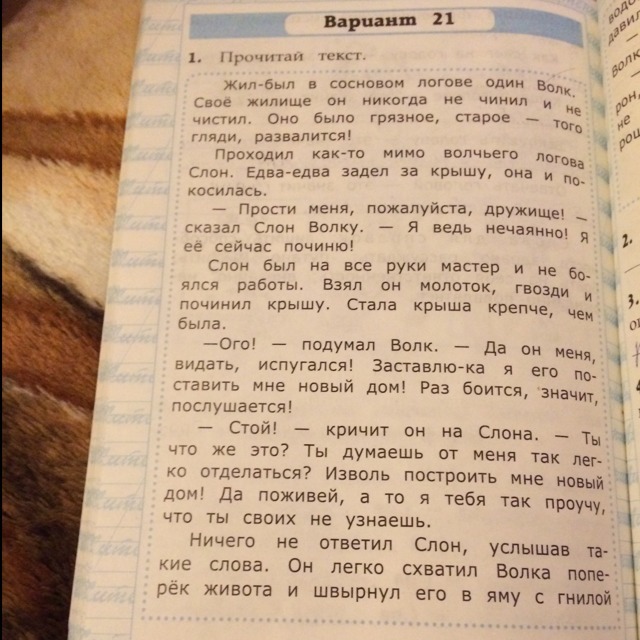 Вариант 21
1. Прочитай текст.
Жил-был в сосновом логове один Волк.
Своё жилище он никогда не чинил и не
чистил. Оно было грязное, старое — того
гляди, развалится!
Проходил как-то мимо волчьего логова
Слон. Едва-едва задел за крышу, она и по-
косилась.
— Прости меня, пожалуйста, дружище! —
сказал Слон Волку. — Я ведь нечаянно! Я
её сейчас починю!
Слон был на все руки мастер и не бо-
ялся работы. Взял он молоток, гвозди и
починил крышу. Стала крыша крепче, чем
была.
—Ого! — подумал Волк. — Да он меня,
видать, испугался! Заставлю-ка я его по-
ставить мне новый дом! Раз боится, значит,
послушается!
— Стой! — кричит он на Слона. — Ты
что же это? Ты думаешь от меня так лег-
ко отделаться? Изволь построить мне новый
дом! Да поживей, а то я тебя так проучу,
что ты своих не узнаешь.
Ничего не ответил Слон, услышав та-
кие слова. Он легко схватил Волка попе-
рёк живота и швырнул его в яму с гнилой
давил
Волк
рон,
не
рош
2.
3.